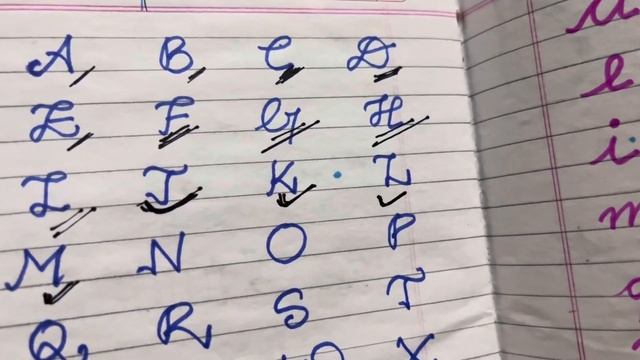 A, B, C, D,
E, F G H
I J K L
M N O P
Q, R, S T
X
u
e
i
m